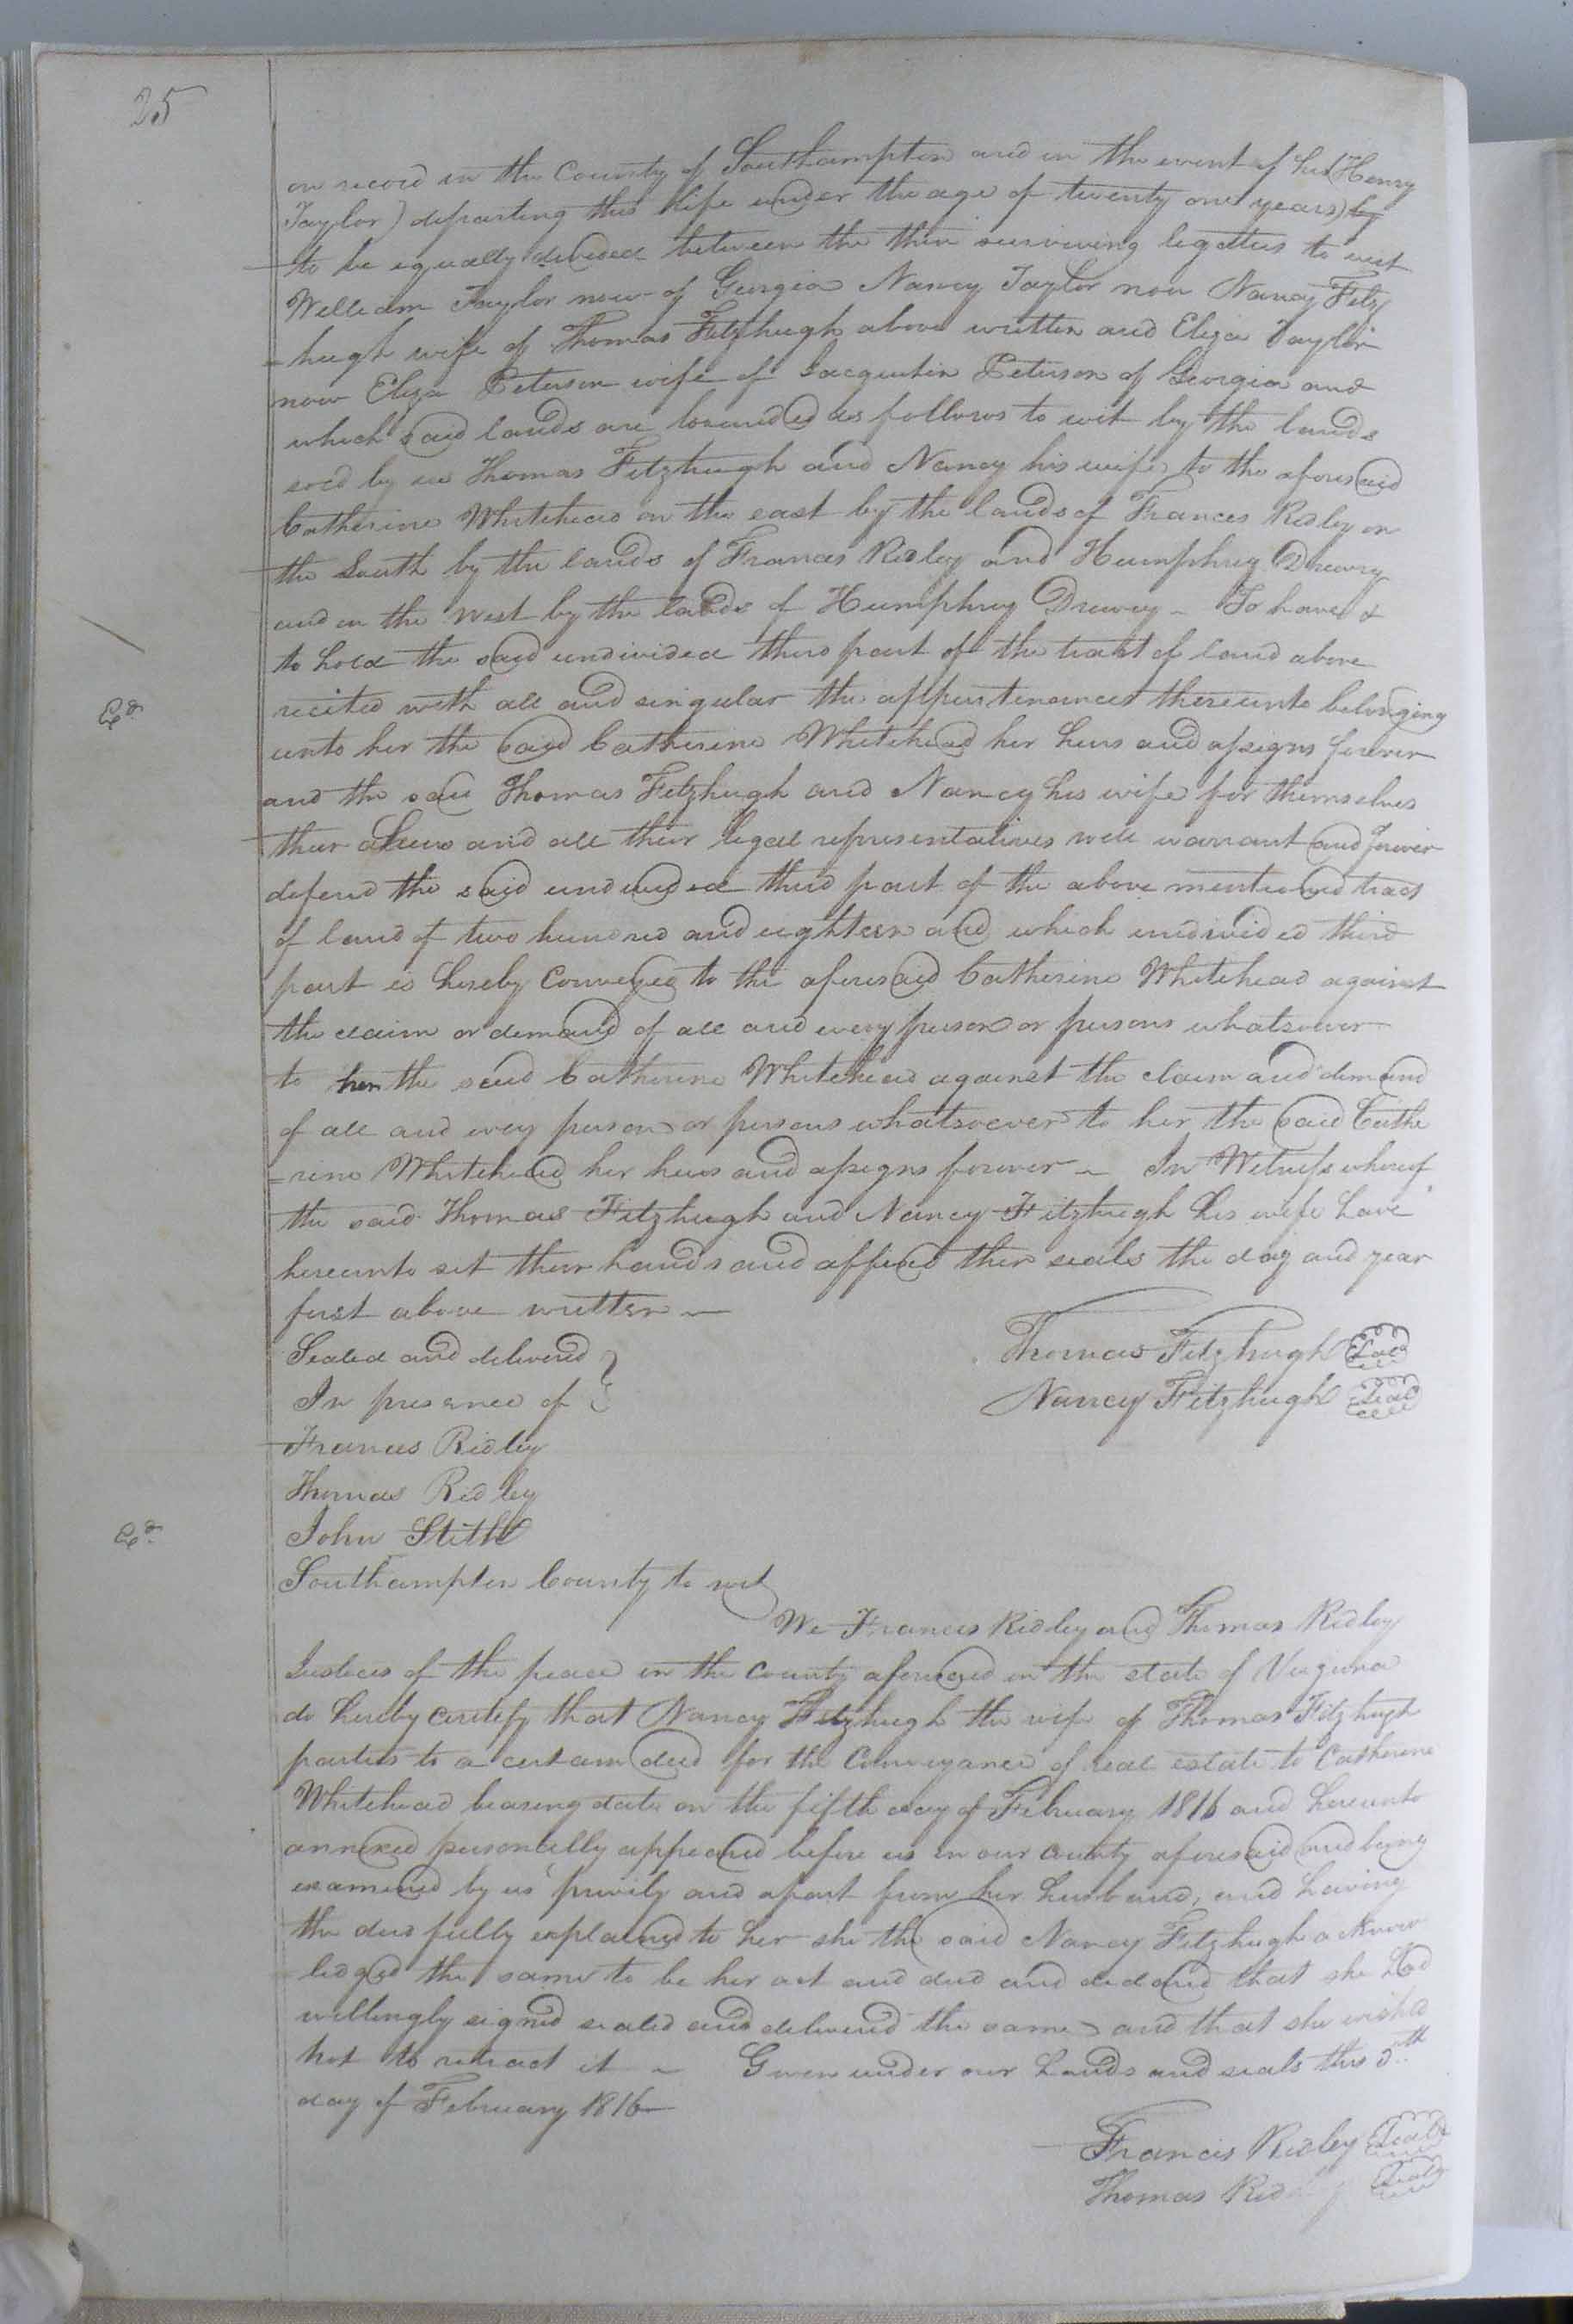 25
on record in the County of Southampton and in the event of his (Henry
Taylor) departing this life under the age of twenty one years) by
to be equally divided between the then surviving legatees to wit
William Taylor now of Georgia Nancy Taylor now Nancy Fitz
-hugh wife of Thomas Fitzhugh above written and Eliza Taylor
now Eliza Peterson wife of Peterson of Georgia and
which said lands are bounded as follows to wit by the lands
sold by us Thomas Fitzhugh and Nancy his wife to the aforesaid
Catherine Whitehead on the east by the lands of Frances Ridley on
the South by the lands of Frances Ridley and Humphrey Drewry
and on the West by the lands of Humphrey Drewry - To have &
to hold the said undivided third part of the tract of land above
recited with all and singular the appurtenances thereunto belonging
Ex.d
unto her the said Catherine Whitehead her heirs and assigns forever
and the said Thomas Fitzhugh and Nancy his wife for themselves
their heirs and all their legal representatives will warrant and forever
defend the said undivided third part of the above mentioned tract
of land of two hundred and eighteen and which undivided third
part is hereby conveyed to the aforesaid Catherine Whitehead against
the claim or demand of all and every person or persons whatsoever
to her the said Catherine Whitehead against the claim and demand
of all and every person or persons whatsoever to her the said Cathe
-rine Whitehead her heirs and assigns forever - In Witness whereof
the said Thomas Fitzhugh and Nancy Fitzhugh his wife have
hereunto set their hands and affixed their seals the day and year
first above written -
Sealed and delivered } Thomas Fitzhugh Seal
In presence of } Nancy Fitzhugh Seal
Frances Ridley
Thomas Ridley
Ex.d
John Stith
Southampton County to wit
We Francis Ridley and Thomas Ridley
Justices of the peace in the County aforesaid in the state of Virginia
do hereby certify that Nancy Fitzhugh the wife of Thomas Fitzhugh
parties to a certain deed for the Conveyance of real estate to Catherine
Whitehead bearing date on the fifth day of February 1816 and hereunto
annexed personally appeared before us in our County aforesaid and being
examined by us privily and apart from her husband, and having
the deed fully explained to her she the said Nancy Fitzhugh acknow
-ledged the same to be her act and deed and declared that she had
willingly signed sealed and delivered the same and that she wished
not to retract it - Given under our hands and seals this 5th
day of February 1816
Francis Ridley Seal
Thomas Ridley Seal